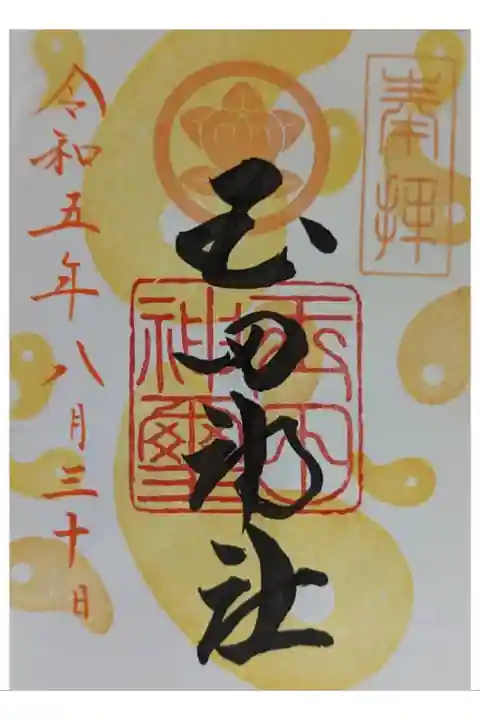 奉拝
玉田神社
玉田
神璽
令和五年八月三十日